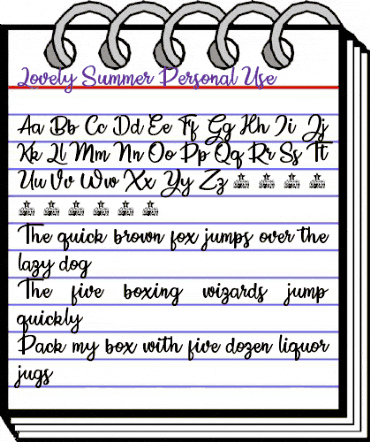 Lovely Summer Personal Use
Aa Bb Cc Dd Ee Ff Gg Hh Ii Jj
Kk Ll Mm Nn Oo Pp Qq Rr Ss Tt
Uu Vv Ww Xx Yy Zz
The quick brown fox jumps over the
lazy dog
The five boxing wizards jump
quickly
Pack my box with five dozen liquor
jugs